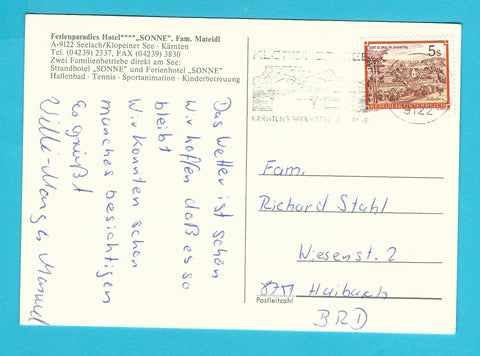 Ferienparadies Hotel****„SONNE", Fam. Mateidl
A-9122 Seelach/Klopeiner See · Kärnten
Tel. (04239) 2337, FAX (04239) 3830
Zwei Familienbetriebe direkt am See:
Strandhotel „SONNE" und Ferienhotel „SONNE"
Hallenbad · Tennis · Sportanimation · Kinderbetreuung
Das Wetter ist schön
wir hoffen daß es so
bleibt
Wir konnten schon
manches besichtigen
Es grüßt
Willi-Manga Manuel
KLOPEINER SEE
KÄRNTENS
9122
5s
STIFT ST. PAUL IM LAVANTTAL
REPUBLIK ÖSTERREICH
Fam.
Richard Stahl
Wiesenstr. 2
8751 Haibach
Postleitzahl
BRD